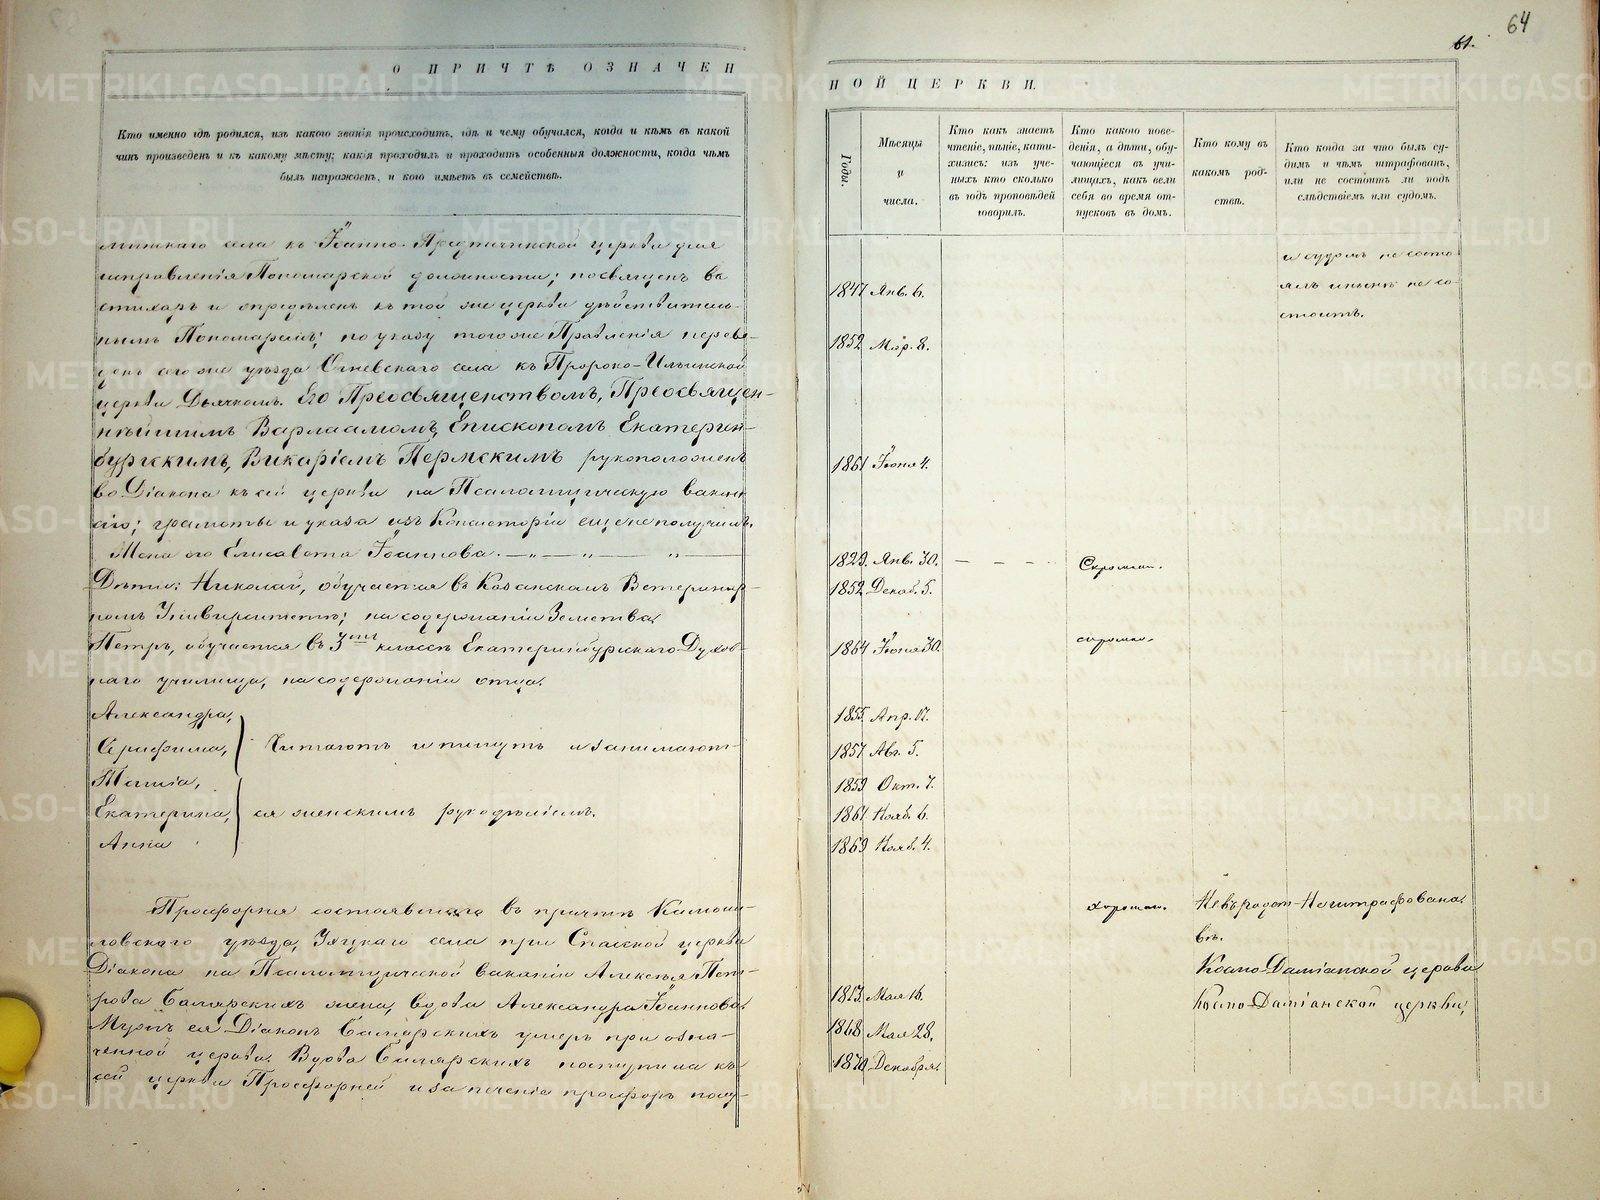 64
61.
О ПРИЧТѢ ОЗНАЧЕН
НОЙ ЦЕРКВИ.
Кто именно гдѣ родился, изъ какого званія происходитъ, гдѣ и чему обучался, когда и кѣмъ въ какой
чинъ произведенъ и къ какому мѣсту; какія проходилъ и проходитъ особенныя должности, когда чѣмъ
былъ награжденъ, и кого имѣетъ въ семействѣ.
села къ Іоанно-Предтечинской церкви для
исправленія Пономарской должности; посвященъ въ
стихарь и опредѣленъ къ той же церкви дѣйствитель-
нымъ Пономаремъ; по указу того же Правленія переве-
денъ сего же уѣзда Огневскаго села къ Пророко-Ильинской
церкви Дьячкомъ. Его Преосвященствомъ, Преосвящен-
нѣйшимъ Варлаамомъ, Епископомъ Екатерин-
бургскимъ, Викаріемъ Пермскимъ рукоположенъ
во Діакона къ сей церкви на Псаломщическую вакан-
сію; грамоты и указа изъ Консисторіи еще не получилъ.
Жена его Елисавета Іоаннова.
Дѣти: Николай, обучается въ Казанскомъ Ветеринар-
номъ на содержаніи Земства;
Петръ, обучается въ 3мъ классѣ Екатеринбургскаго Духов-
наго училища, на содержаніи отца.
Александра,
Серафима, Читаютъ и пишутъ и занимают-
Таисія,
Екатерина, ся женскимъ рукодѣліемъ.
Анна
Просфорня состоявшаго въ причтѣ Камыш-
ловскаго уѣзда, села при Спасской церкви
Діакона на Псаломщической вакансіи Алексѣя Пет-
рова жена, вдова Александра Іоаннова.
Мужъ ея Діаконъ умеръ при озна-
ченной церкви. Вдова поступила къ
сей церкви Просфорней и за печеніе просфоръ полу-
Годы.
Мѣсяцы
и
числа.
Кто какъ знаетъ
чтеніе, пѣніе, кати-
хизисъ: изъ уче-
ныхъ кто сколько
въ годъ проповѣдей
говорилъ.
Кто какого пове-
денія, а дѣти, обу-
чающіеся въ учи-
лищахъ, какъ вели
себя во время от-
пусковъ въ домъ.
Кто кому въ
какомъ род-
ствѣ.
Кто когда за что былъ су-
димъ и чѣмъ штрафованъ,
или не состоитъ ли подъ
слѣдствіемъ или судомъ.
и судомъ не состо-
ялъ и нынѣ не со-
стоитъ.
1847 Янв. 6.
1852 Мар. 8.
1861 Іюня 4.
1829. Янв. 30. Скромнаго.
1852 Декаб. 5.
1864 Іюня 30. скромнаго.
1855 Апр. 17.
1857 Авг. 5.
1859 Окт. 7.
1861 Нояб. 6.
1869 Нояб. 4.
хорошаго. Не въ родст- Не штрафована.
вѣ.
Космо-Даміанской церкви
1813. Мая 16. Космо-Даміанской церкви;
1868 Мая 28.
1870 Декабря.